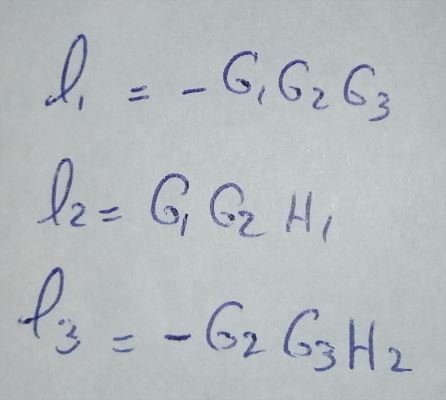 l₁ = - G₁ G₂ G₃
l₂ = G₁ G₂ H₁
l₃ = - G₂ G₃ H₂